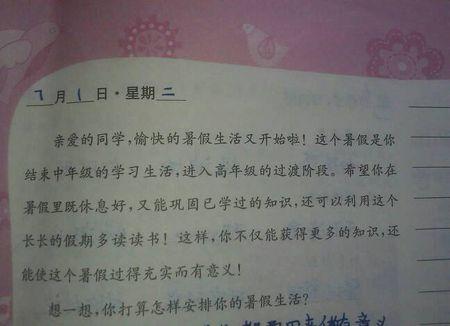 7月1日·星期二
亲爱的同学，愉快的暑假生活又开始啦！这个暑假是你
结束中年级的学习生活，进入高年级的过渡阶段。希望你在
暑假里既休息好，又能巩固已学过的知识，还可以利用这个
长长的假期多读读书！这样，你不仅能获得更多的知识，还
能使这个暑假过得充实而有意义！
想一想，你打算怎样安排你的暑假生活？
有意义